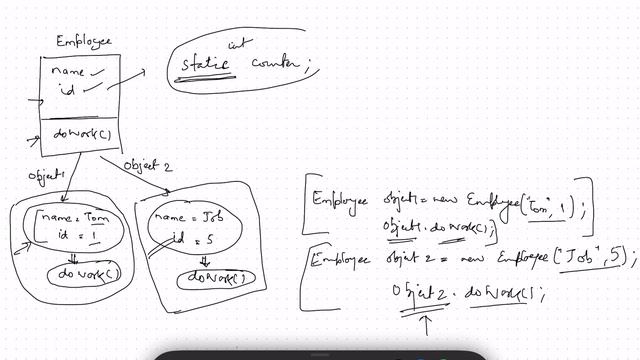 Employee
name
id
doWork()
int
static counter;
Object1
Object 2
name = Tom
id = 1
doWork()
name = Job
id = 5
doWork()
Employee object1 = new Employee("Tom", 1);
object1.doWork();
Employee object 2 = new Employee("Job", 5);
Object 2 . doWork();